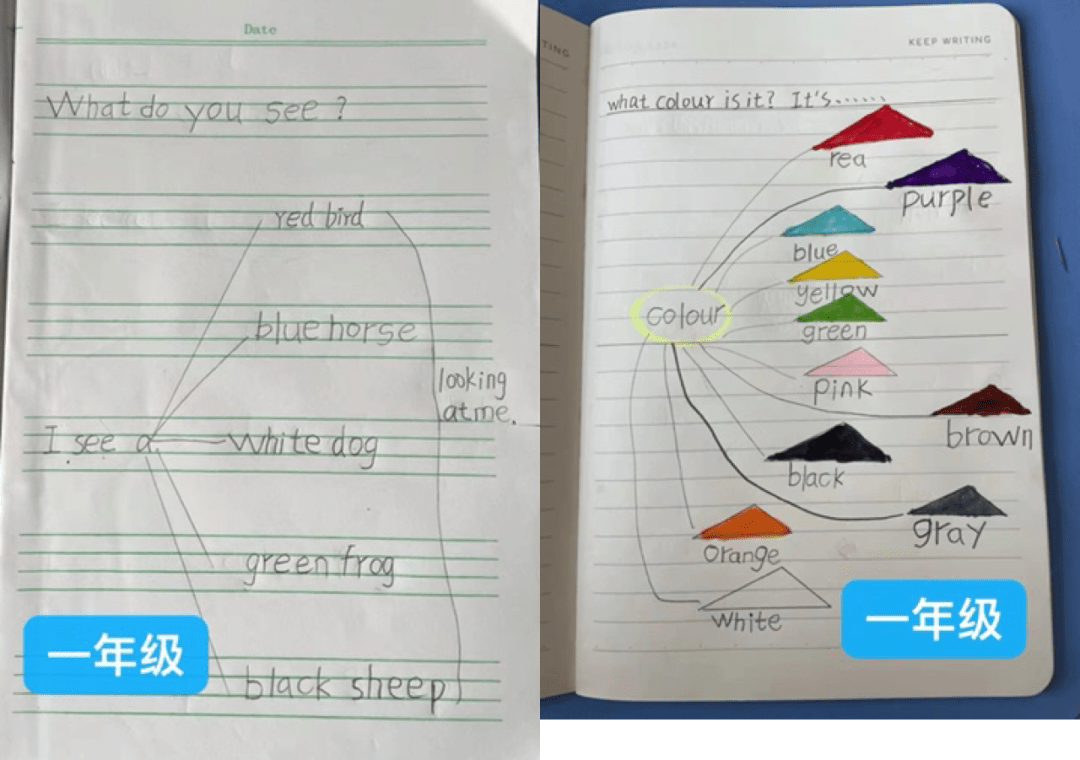 Date
What do you see ?
red bird
blue horse
looking
at me.
I see a
white dog
green frog
black sheep
一年级
TING
KEEP WRITING
what colour is it? It's......
rea
purple
blue
yellow
green
colour
pink
brown
black
gray
orange
white
一年级